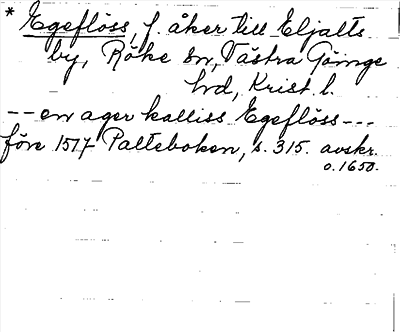 * Egeflöss, f. åker till Eljalts
by, Röke sn, Västra Göinge
hd, Krist. l.
-- en ager kalliss Egeflöss ---
före 1517 Palteboken, s. 315. avskr.
o. 1650.